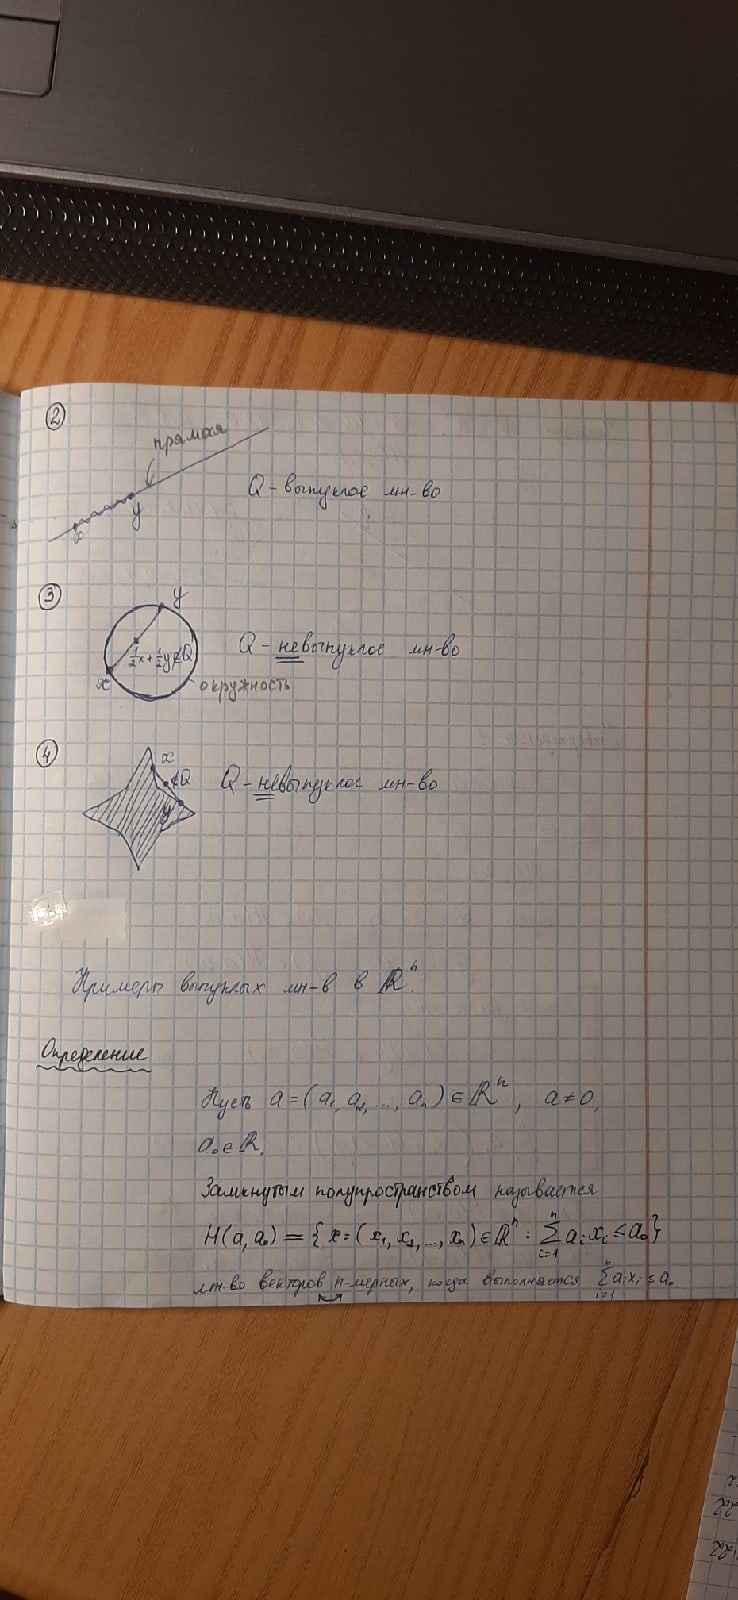 ②
прямая
x
y
Q - выпуклое мн-во
③
y
½x+½y∉Q
x
окружность
Q - невыпуклое мн-во
④
x
∉Q
y
Q - невыпуклое мн-во
Примеры выпуклых мн-в в ℝⁿ.
Определение
Пусть a = (a₁, a₂, ..., aₙ) ∈ ℝⁿ, a ≠ 0,
a₀ ∈ ℝ.
Замкнутым полупространством называется
H(a, a₀) = { x = (x₁, x₂, ..., xₙ) ∈ ℝⁿ : ∑ᵢ₌₁ⁿ aᵢ xᵢ ≤ a₀ }
мн-во векторов n-мерных, когда выполняется ∑ᵢ₌₁ⁿ aᵢxᵢ ≤ a₀